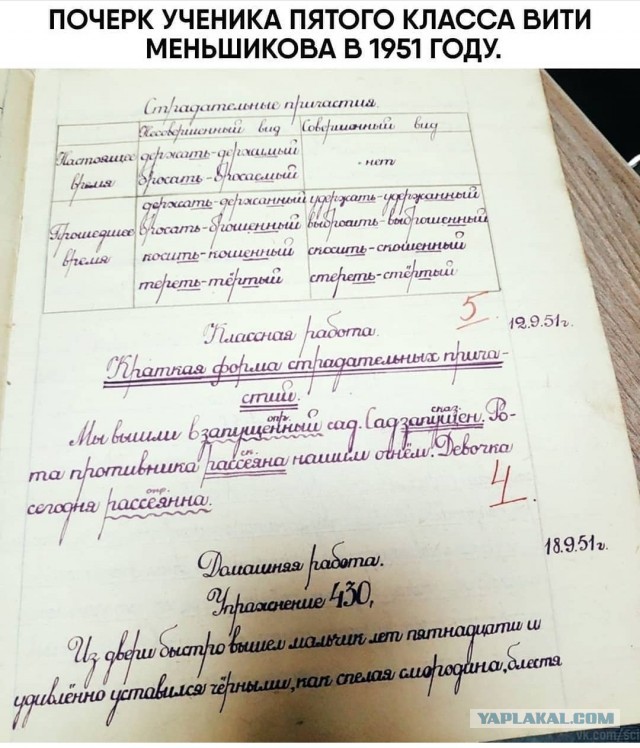 ПОЧЕРК УЧЕНИКА ПЯТОГО КЛАССА ВИТИ
МЕНЬШИКОВА В 1951 ГОДУ.
Страдательные причастия
Несовершенный вид Совершенный вид
Настоящее время держать - держимый нет
бросать - бросаемый
Прошедшее время держать - держанный удержать - удержанный
бросать - брошенный выбросить - выброшенный
косить - кошенный скосить - скошенный
тереть - тёртый стереть - стёртый
5
12.9.51г.
Классная работа.
Краткая форма страдательных прича-
стий.
опр. сказ.
Мы вышли в запущенный сад. Сад запущен. Ро-
ск.
та противника рассеяна нашим огнём. Девочка
опр.
сегодня рассеянна.
4
18.9.51г.
Домашняя работа.
Упражнение 430,
Из двери быстро вышел мальчик лет пятнадцати и
удивлённо уставился чёрными, как спелая смородина, блестя
YAPLAKAL.COM